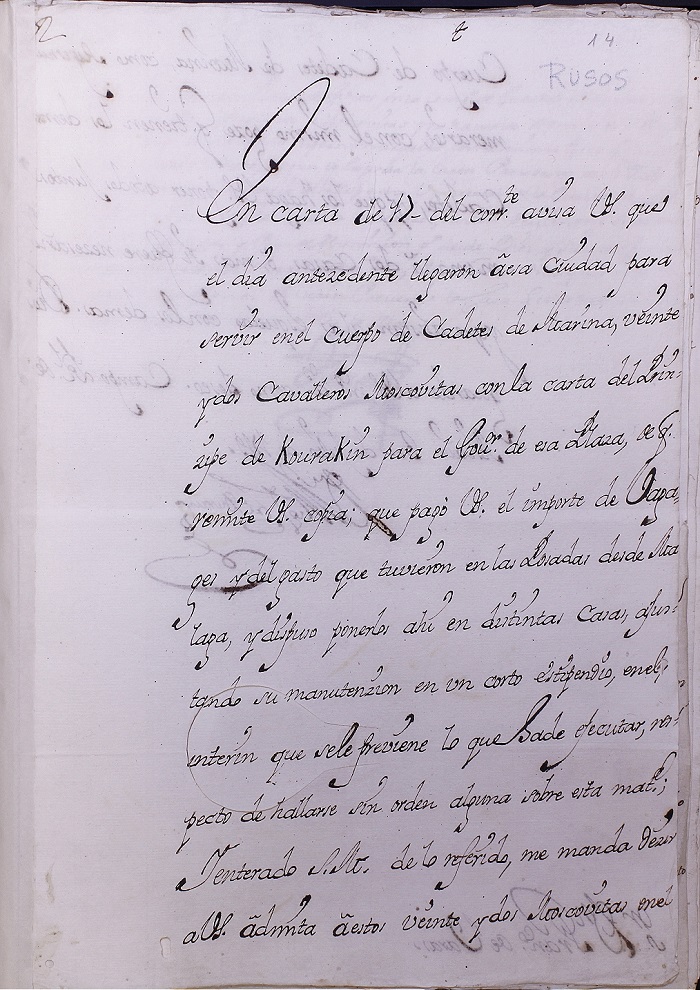 2
t
14
RUSOS
En carta de 17 del corr.te avisa VS. que
el dia antezedente llegaron ãesa Ciudad para
servir en el cuerpo de Cadetes de Marina, veinte
ydos Cavalleros Moscovitas conla carta del Prin-
zipe de KouraKin para el Gov.or de esa Plaza, de q.
remite VS. copia; que pagó VS. el importe de Vaga-
ges y del gasto que tuvieron en las Posadas desde Ma
laga, y dispuso ponerlos ahi en distintas Casas, ajus-
tando su manutenzion en un corto estipendio, enel,
interin que sele previene lo que hade ejecutar, res-
pecto de hallarse sin orden alguna sobre esta mat.a;
Y enterado S.M. de lo referido, me manda dezir
a VS. ãdmita ãestos veinte ydos Moscovitas enel